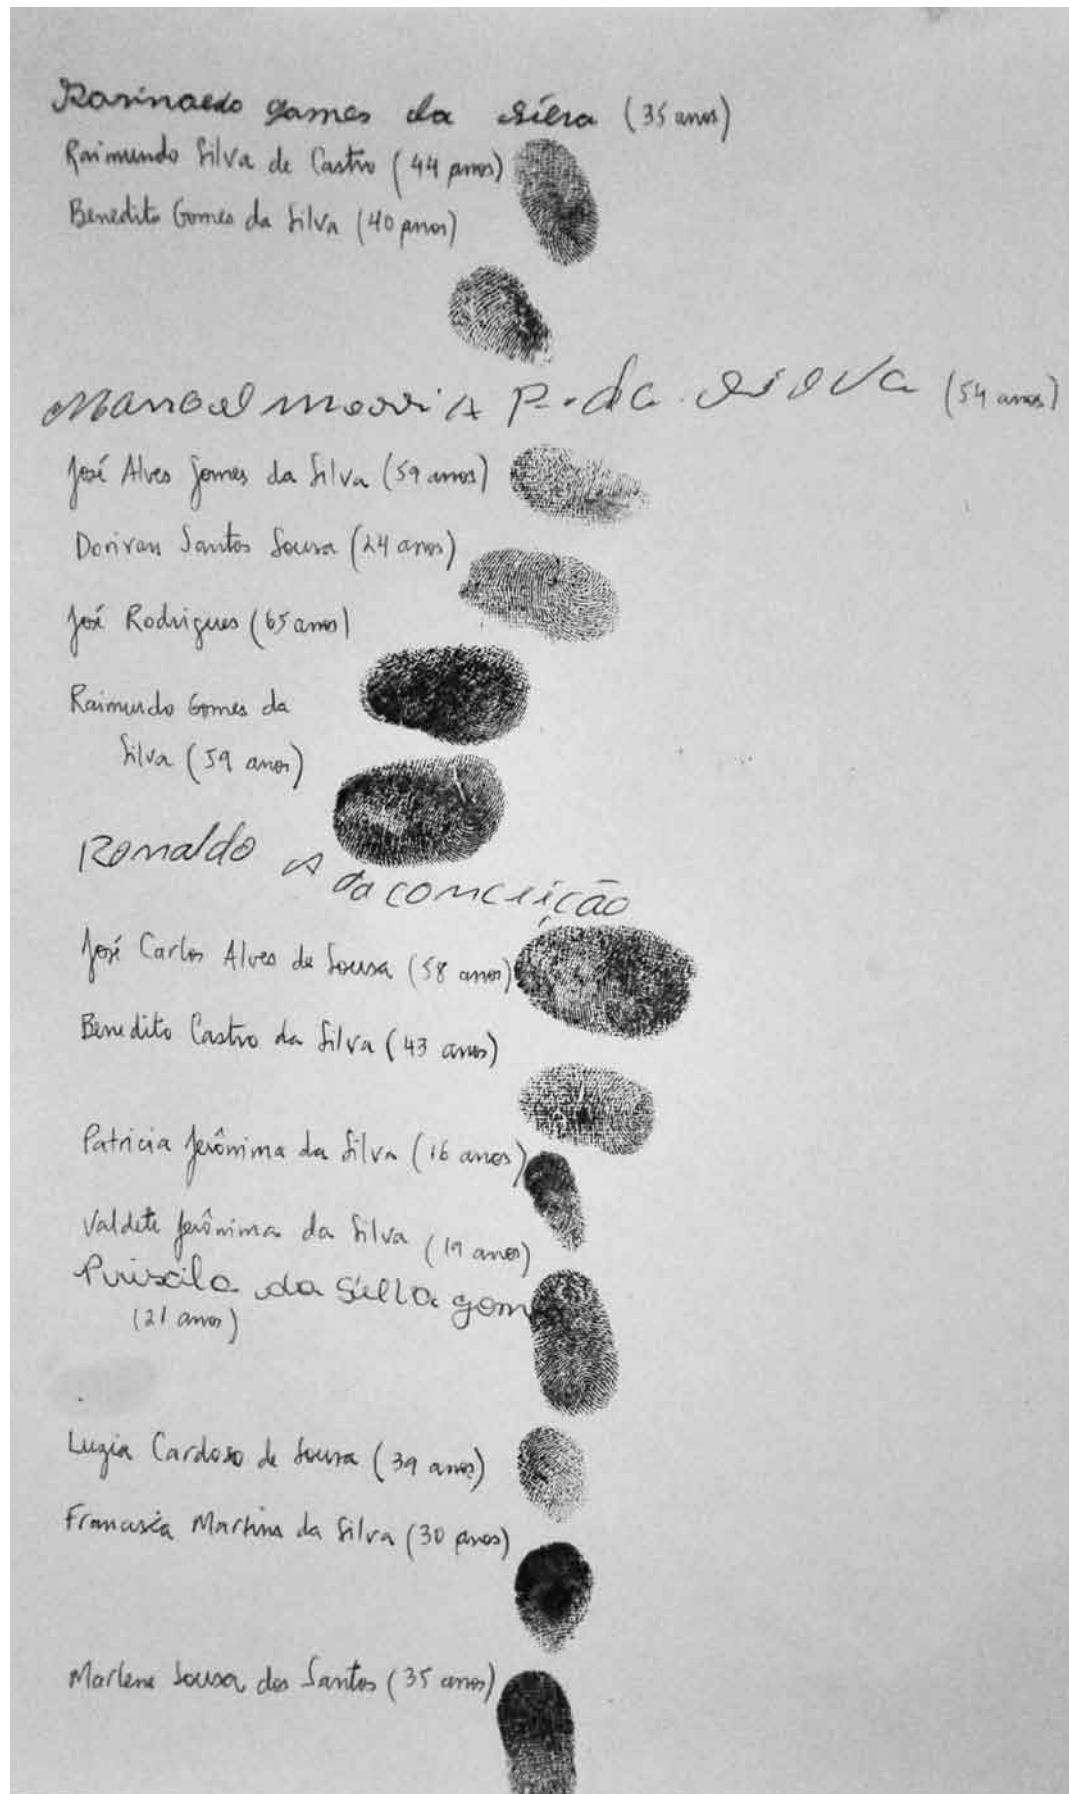 Rosinaldo gomes da silva (35 anos)
Raimundo Silva de Castro (44 anos)
Benedito Gomes da Silva (40 anos)
Manoel P. da silva (54 anos)
José Alves Gomes da Silva (59 anos)
Dorivan Santos Sousa (24 anos)
José Rodrigues (65 anos)
Raimundo Gomes da
Silva (59 anos)
Ronaldo A da conceição
José Carlos Alves de Sousa (58 anos)
Benedito Castro da Silva (43 anos)
Patricia Jerônima da Silva (16 anos)
Valdete Jerônima da Silva (19 anos)
Priscila da Silva gom
(21 anos)
Luzia Cardoso de Sousa (39 anos)
Francisca Martins da Silva (30 anos)
Marlene Sousa dos Santos (35 anos)